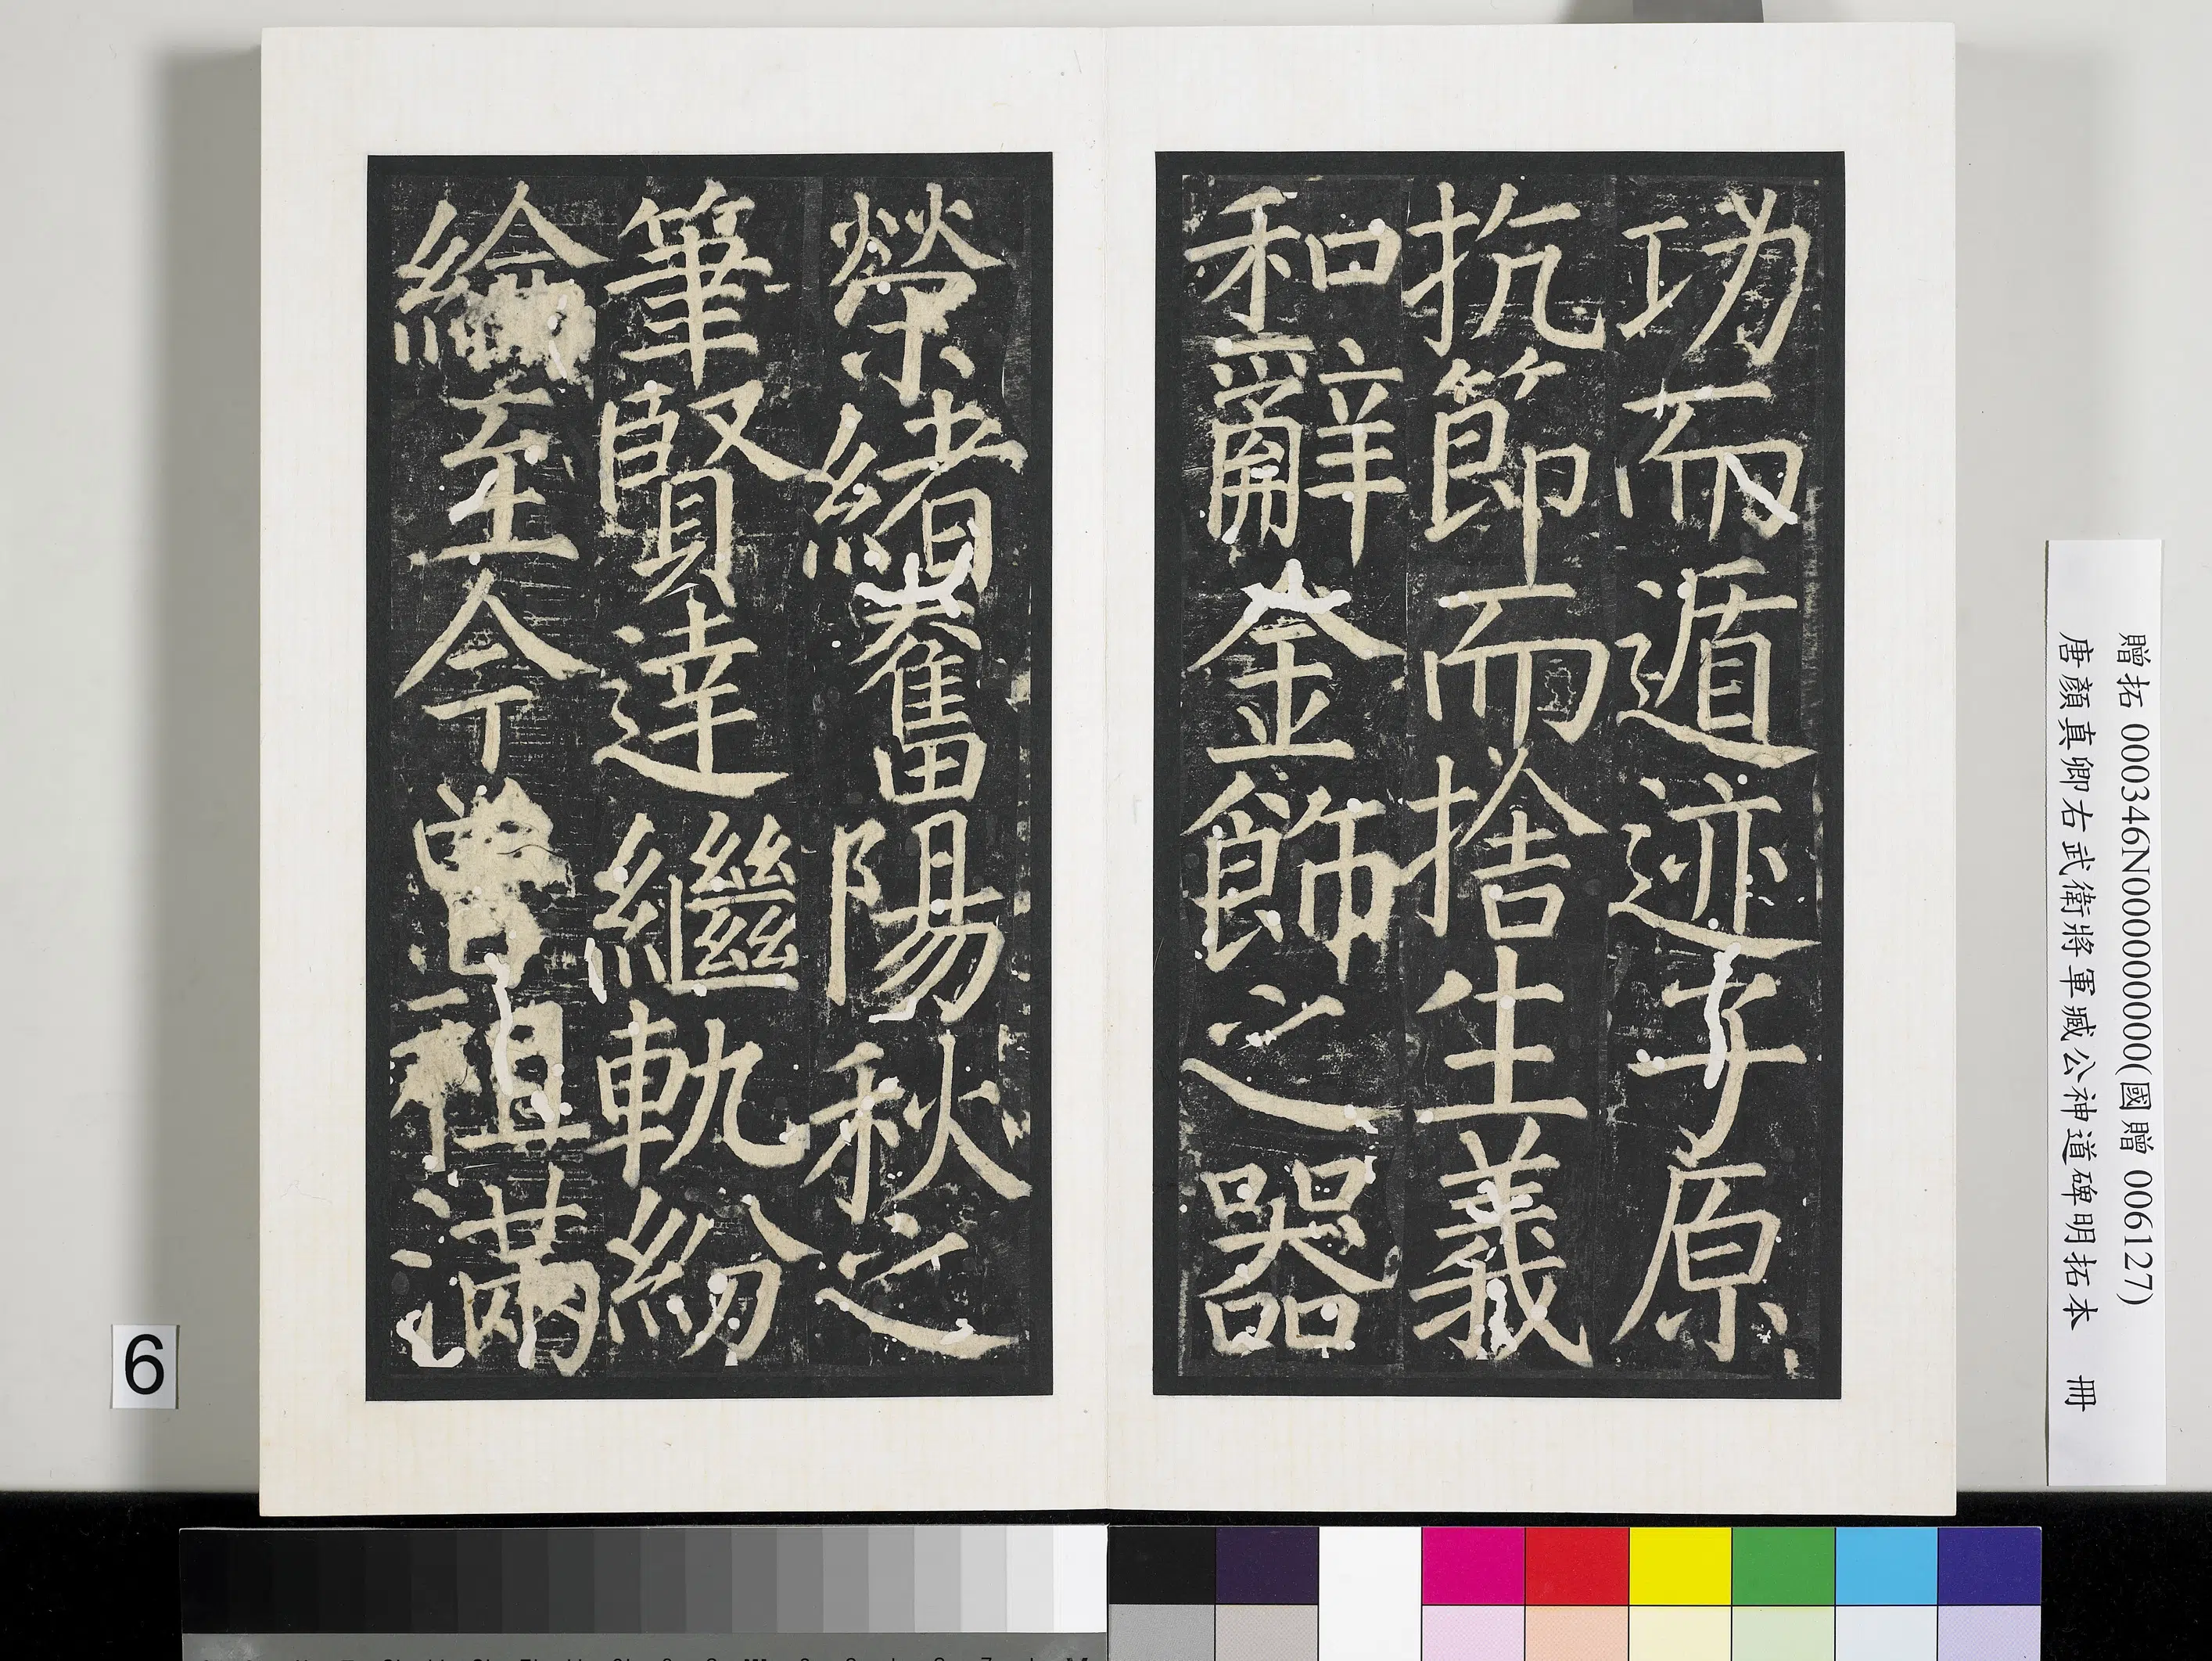 功而遁迹子原
抗節而捨生義
和辭金飾之器
榮緒奮陽秋之
筆賢達繼軌紛
綸至今曾祖滿
贈拓 000346N000000000(國贈 006127)
唐顏真卿右武衛將軍臧公神道碑明拓本 冊
6